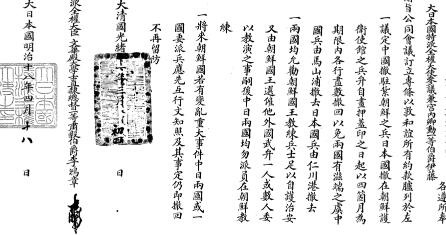 各遵所奉
大日本國特派全權大使參議兼宮內卿勳一等伯爵伊藤
旨公同會議訂立專條以敦和誼所有約款臚列於左
一議定中國撤駐紮朝鮮之兵日本國撤在朝鮮護
衛使館之兵弁自畫押蓋印之日起以四個月為
期限內各行盡數撤回以免兩國有滋端之虞中
國兵由馬山浦撤去日本國兵由仁川港撤去
一兩國均允勸朝鮮國王教練兵士足以自護治安
又由朝鮮國王選僱他外國武弁一人或數人委
以教演之事嗣後中日兩國均勿派員在朝鮮教
練
一將來朝鮮國若有變亂重大事件中日兩國或一
國要派兵應先互行文知照及其事定仍即撤回
不再留防
大清國光緒十一年三月初四日
特派全權大臣文華殿大學士直隸總督一等肅毅伯爵李鴻章
大日本國明治十八年四月十八日